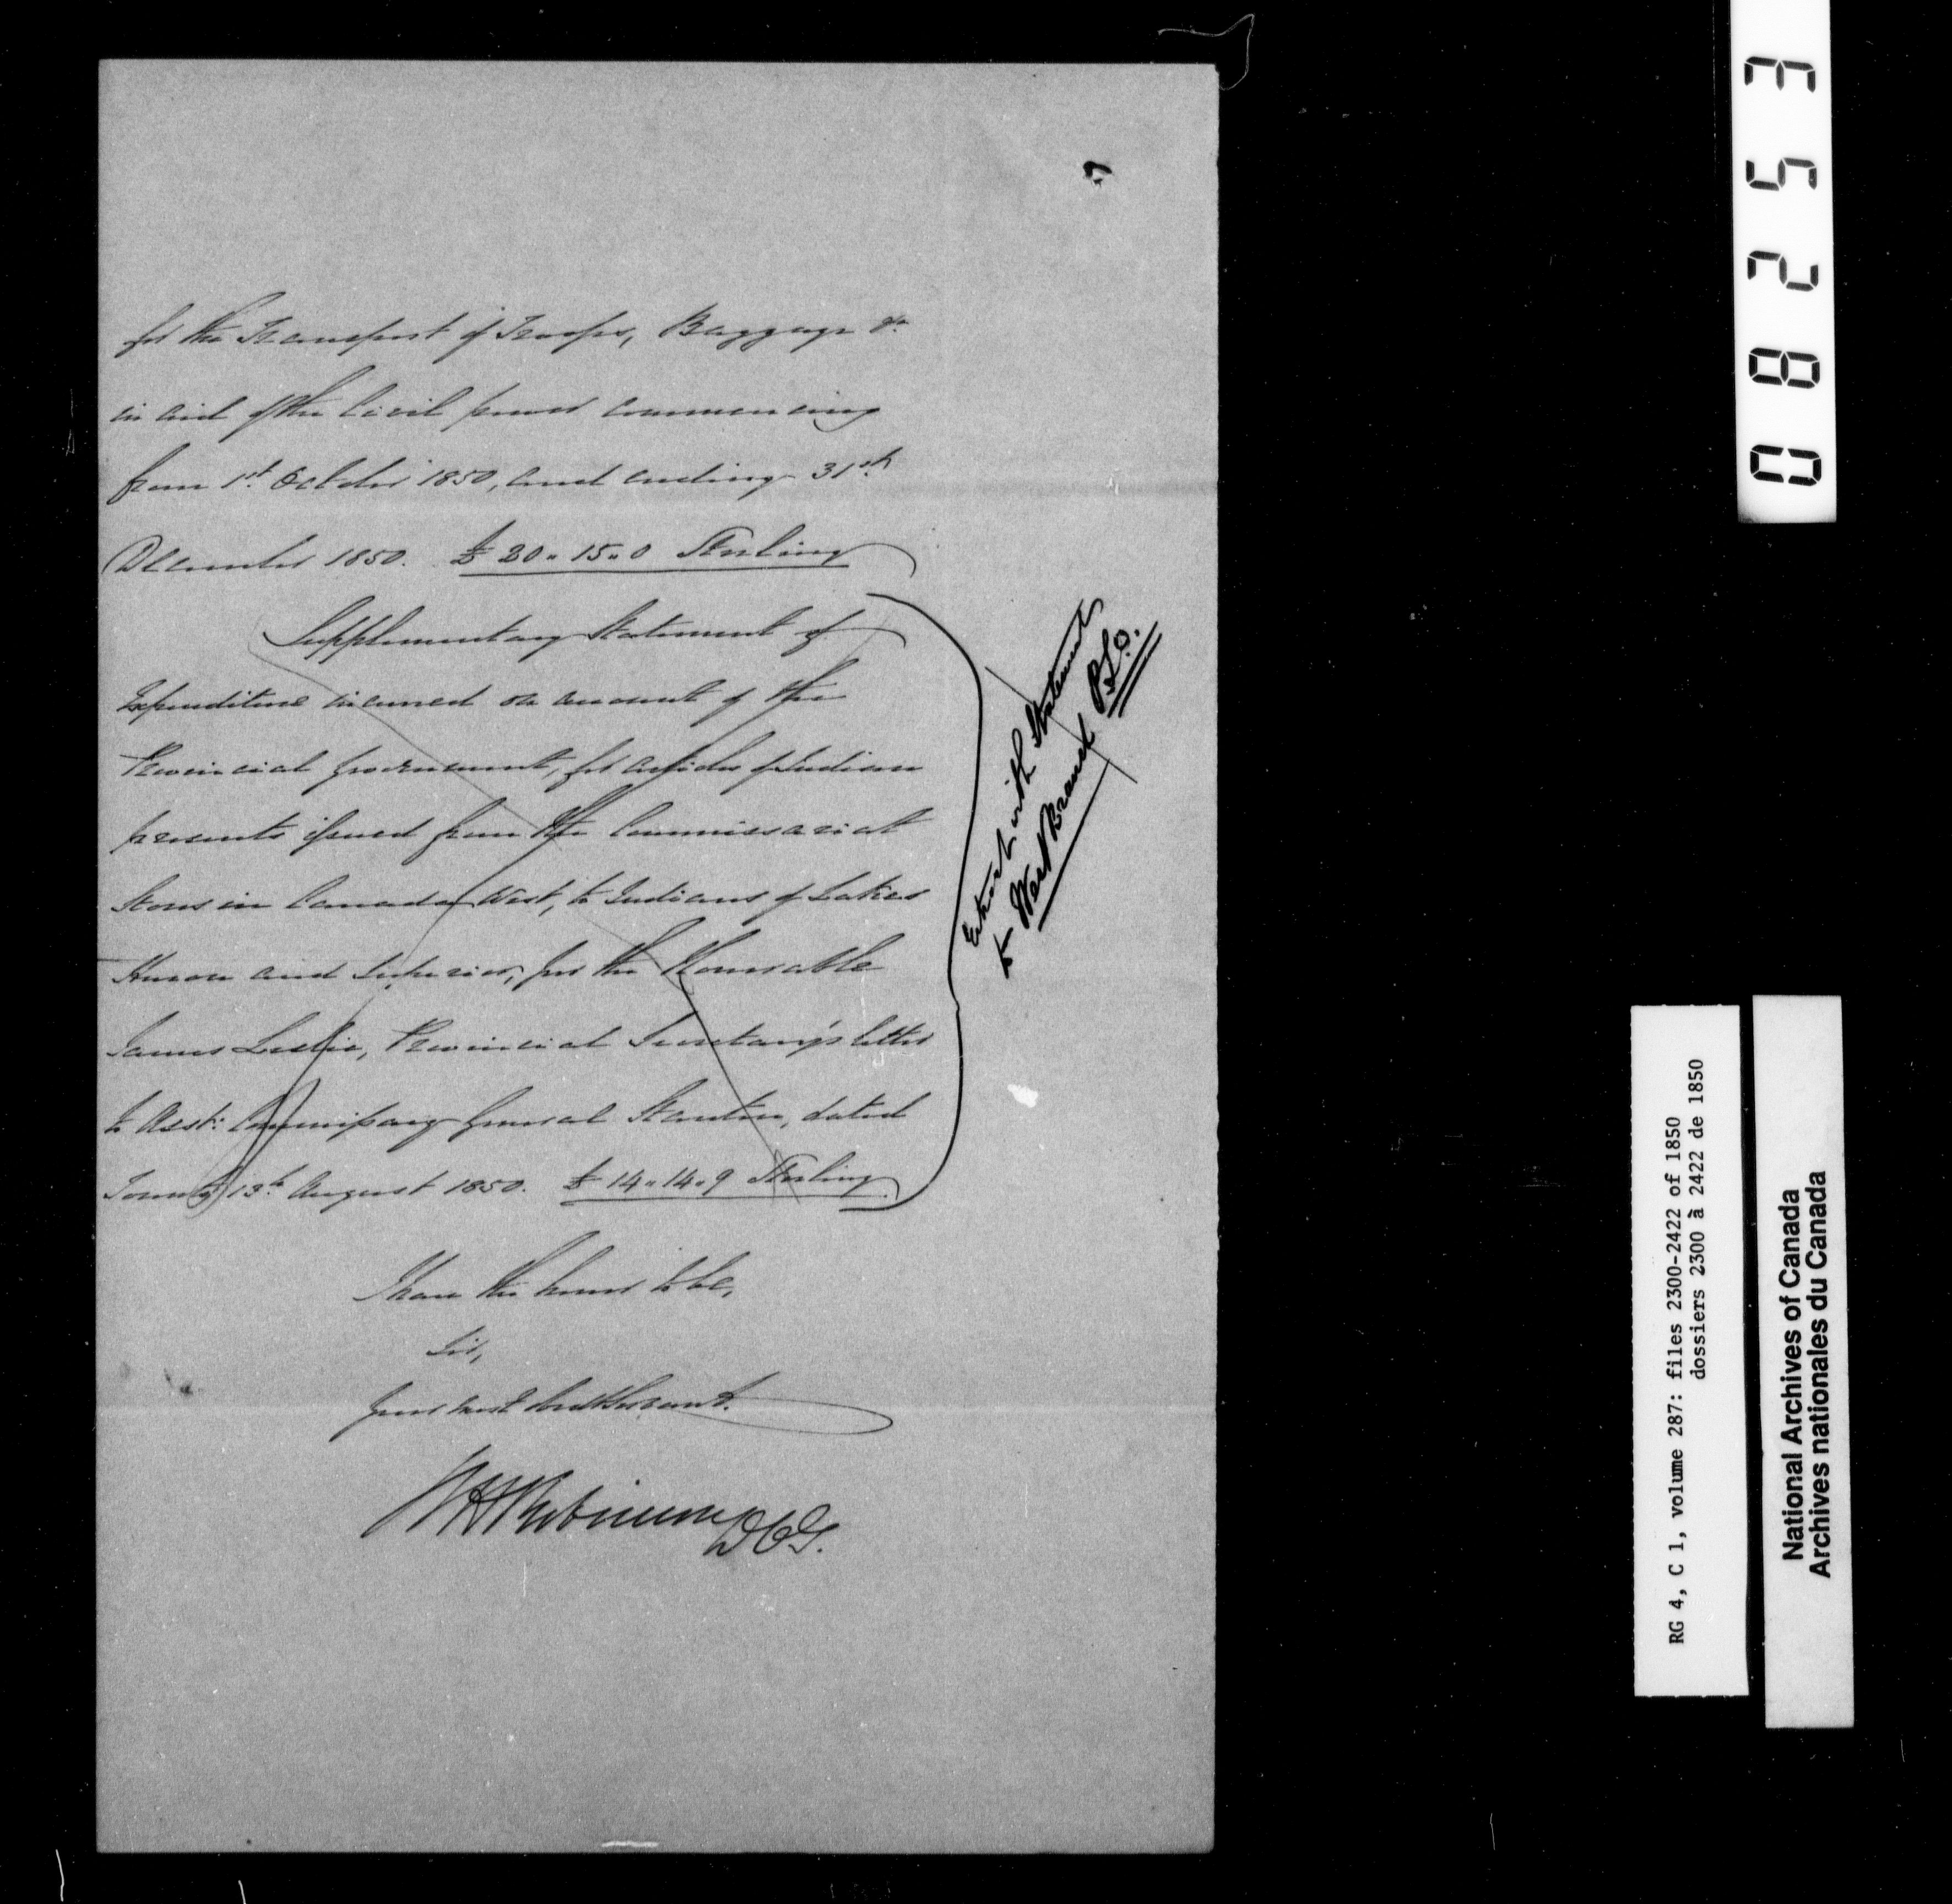 for the Transport of Troops, Baggage &c
in aid of the Civil power commencing
from 1st October 1850, and ending 31st
December 1850. £20.. 15.. 0 Sterling
Supplementary Statement of
Expenditure incurred on account of the
Provincial Government, for articles of Indian
presents issued from the Commissariat
Stores in Canada West, to Indians of Lakes
Huron and Superior, per the Honorable
James Leslie, Provincial Secretary's letter
to Asst: Commissary General Stanton, dated
Toronto 13th August 1850. £14.. 14.. 9 Sterling
Extract with Statement
to West Branch P.S.O.
I have the honor to be,
Sir,
Your most obedt Servant.
WH Robinson DCG.
08253
RG 4, C 1, volume 287: files 2300-2422 of 1850
dossiers 2300 à 2422 de 1850
National Archives of Canada
Archives nationales du Canada